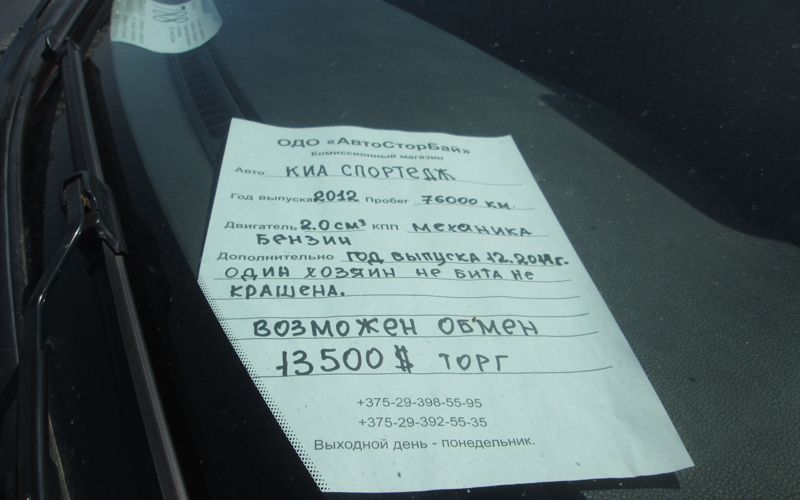 ОДО «АвтоСторБай»
Комиссионный магазин
Авто КИА СПОРТЕДЖ
Год выпуска 2012 Пробег 76000 км.
Двигатель 2.0 см³ КПП МЕХАНИКА
БЕНЗИН
Дополнительно ГОД ВЫПУСКА 12.2011г.
ОДИН ХОЗЯИН НЕ БИТА НЕ
КРАШЕНА.
ВОЗМОЖЕН ОБМЕН
13500 $ ТОРГ
+375-29-398-55-95
+375-29-392-55-35
Выходной день - понедельник.